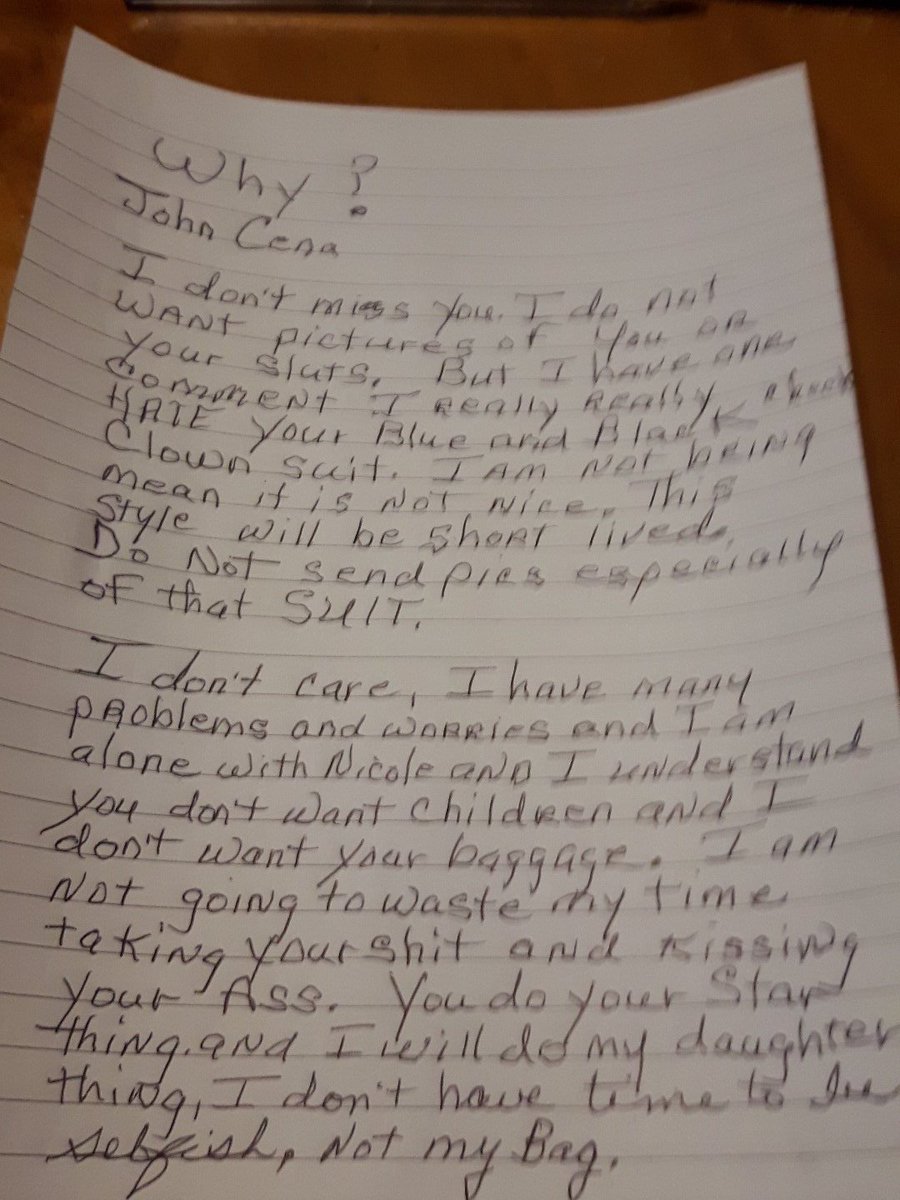 Why?
John Cena
I don't miss you. I do not
WANT pictures of You or
your sluts. But I have one
comment I really really
HATE your Blue and Black
Clown suit. I AM NOT being
mean it is NOT NICE. This
Style will be short lived.
Do Not send pics especially
of that SUIT.
I don't care, I have many
problems and worries and I am
alone with Nicole AND I understand
you don't want children and I
don't want your baggage. I am
NOT going to waste my time
taking your shit and kissing
your Ass. You do your Star
thing. and I will do my daughter
thing, I don't have time to be
selfish, Not my Bag.